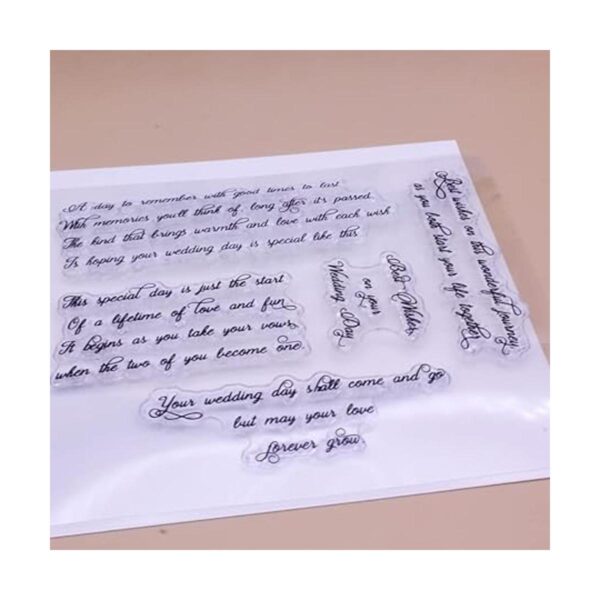 A day to remember with good times to last
With memories you'll think of, long after it's passed
The kind that brings warmth and love with each wish
Is hoping your wedding day is special like this
This special day is just the start
Of a lifetime of love and fun
It begins as you take your vows
when the two of you become one.
Best Wishes
on your
Wedding Day
Best wishes on this wonderful journey
as you both start your life together
Your wedding day shall come and go
but may your love
forever grow